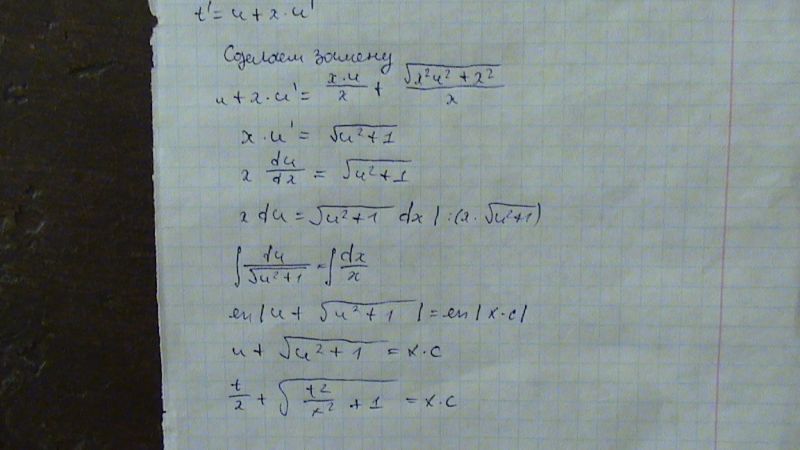 t' = u + x · u'
Сделаем замену
u + x · u' = x·u/x + √(x²u² + x²)/x
x · u' = √(u² + 1)
x du/dx = √(u² + 1)
x du = √(u² + 1) dx | : (x · √(u² + 1))
∫ du/√(u² + 1) = ∫ dx/x
ln | u + √(u² + 1) | = ln | x · c |
u + √(u² + 1) = x · c
t/x + √(t²/x² + 1) = x · c